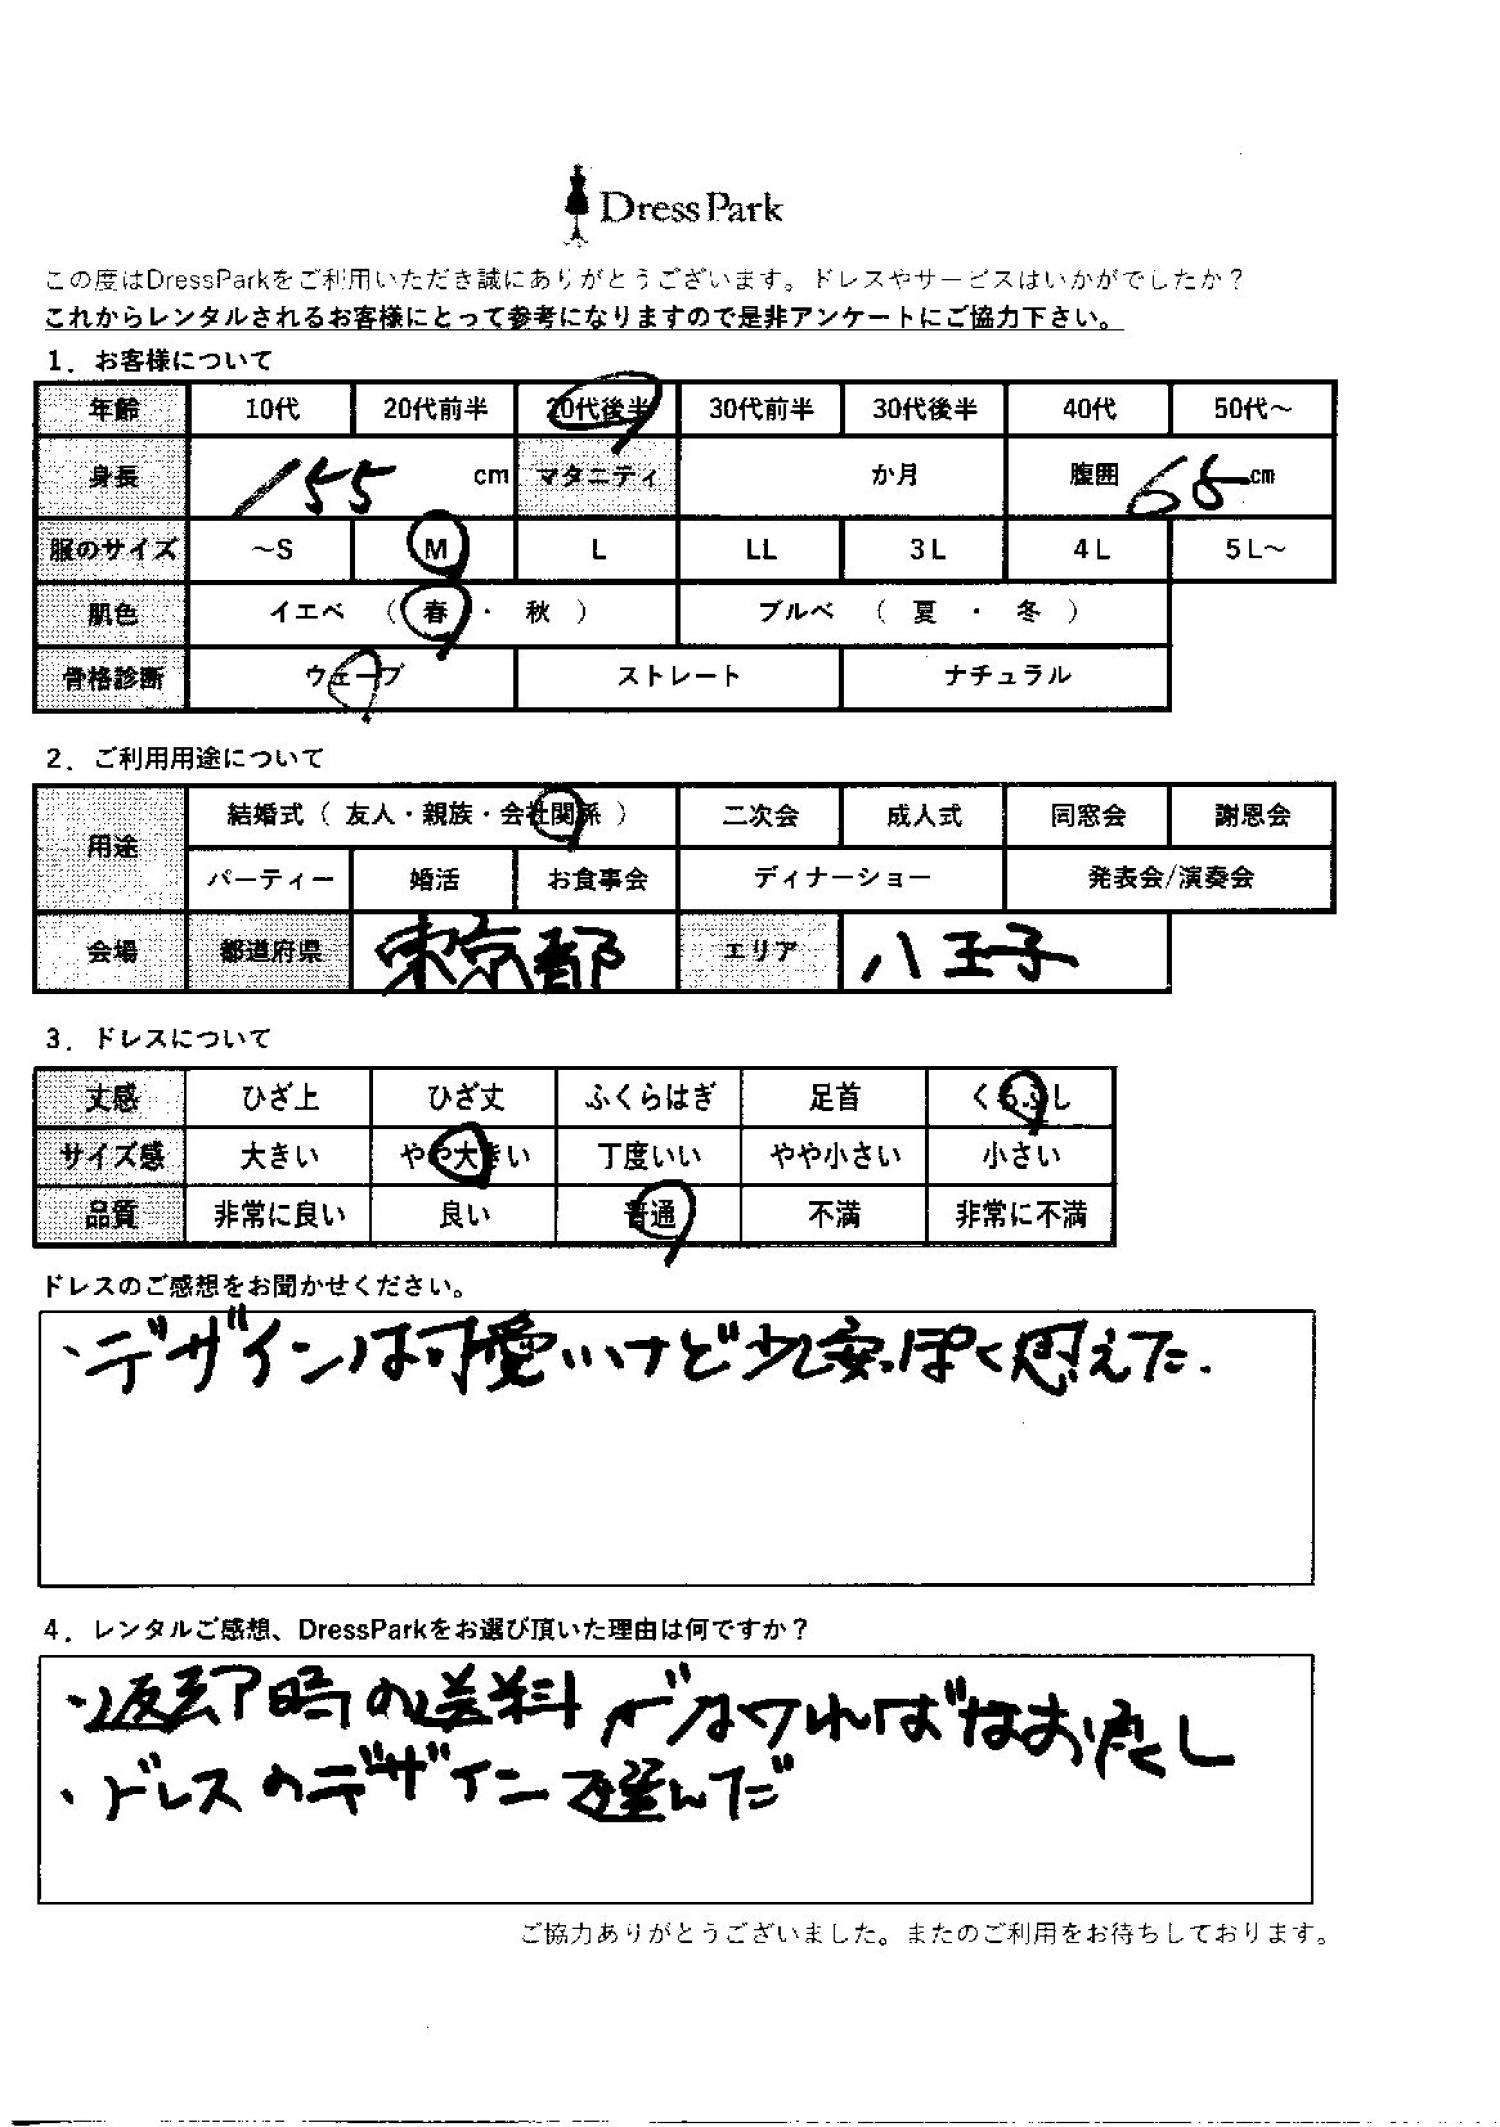 DressPark
この度はDressParkをご利用いただき誠にありがとうございます。ドレスやサービスはいかがでしたか？
これからレンタルされるお客様にとって参考になりますので是非アンケートにご協力下さい。
1．お客様について
年齢 10代 20代前半 20代後半 30代前半 30代後半 40代 50代～
身長 155 cm マタニティ か月 腹囲 65 cm
服のサイズ ～S M L LL 3L 4L 5L～
肌色 イエベ （ 春 ・ 秋 ） ブルベ （ 夏 ・ 冬 ）
骨格診断 ウェーブ ストレート ナチュラル
2．ご利用用途について
用途 結婚式（ 友人・親族・会社関係 ） 二次会 成人式 同窓会 謝恩会
パーティー 婚活 お食事会 ディナーショー 発表会/演奏会
会場 都道府県 東京都 エリア 八王子
3．ドレスについて
丈感 ひざ上 ひざ丈 ふくらはぎ 足首 くるぶし
サイズ感 大きい やや大きい 丁度いい やや小さい 小さい
品質 非常に良い 良い 普通 不満 非常に不満
ドレスのご感想をお聞かせください。
・デザインは可愛いけど少し安っぽく思えた.
4．レンタルご感想、DressParkをお選び頂いた理由は何ですか？
・返却時の送料がなければなお良し
・ドレスのデザインで選んだ
ご協力ありがとうございました。またのご利用をお待ちしております。